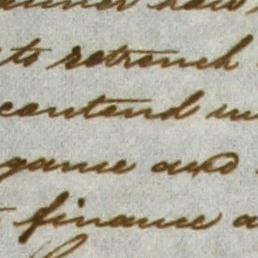 to retrench
contend in
game and
finance a